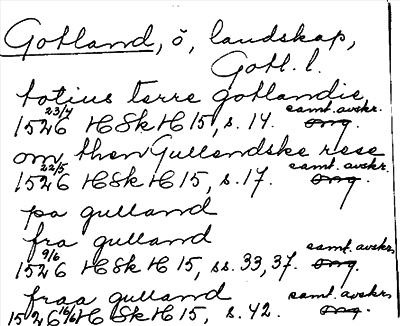 Gotland, ö, landskap,
Gotl. l.
totius terre gotlandie
1526 23/4 HSkH 15, s. 14. samt. avskr. orig.
om then Gullendske rese
1526 22/5 HSkH 15, s. 17. samt. avskr. orig.
pa gulland
fra gulland
1526 9/6 HSkH 15, ss. 33, 37. samt. avskr. orig.
fraa gulland
1526 16/6 HSkH 15, s. 42. samt. avskr. orig.